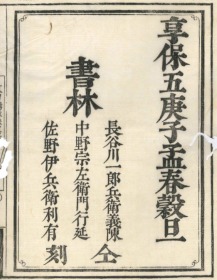 享保五庚子孟春穀旦
書林
長谷川一郎兵衛義陳
中野宗左衛門行延
佐野伊兵衛利有
仝刻